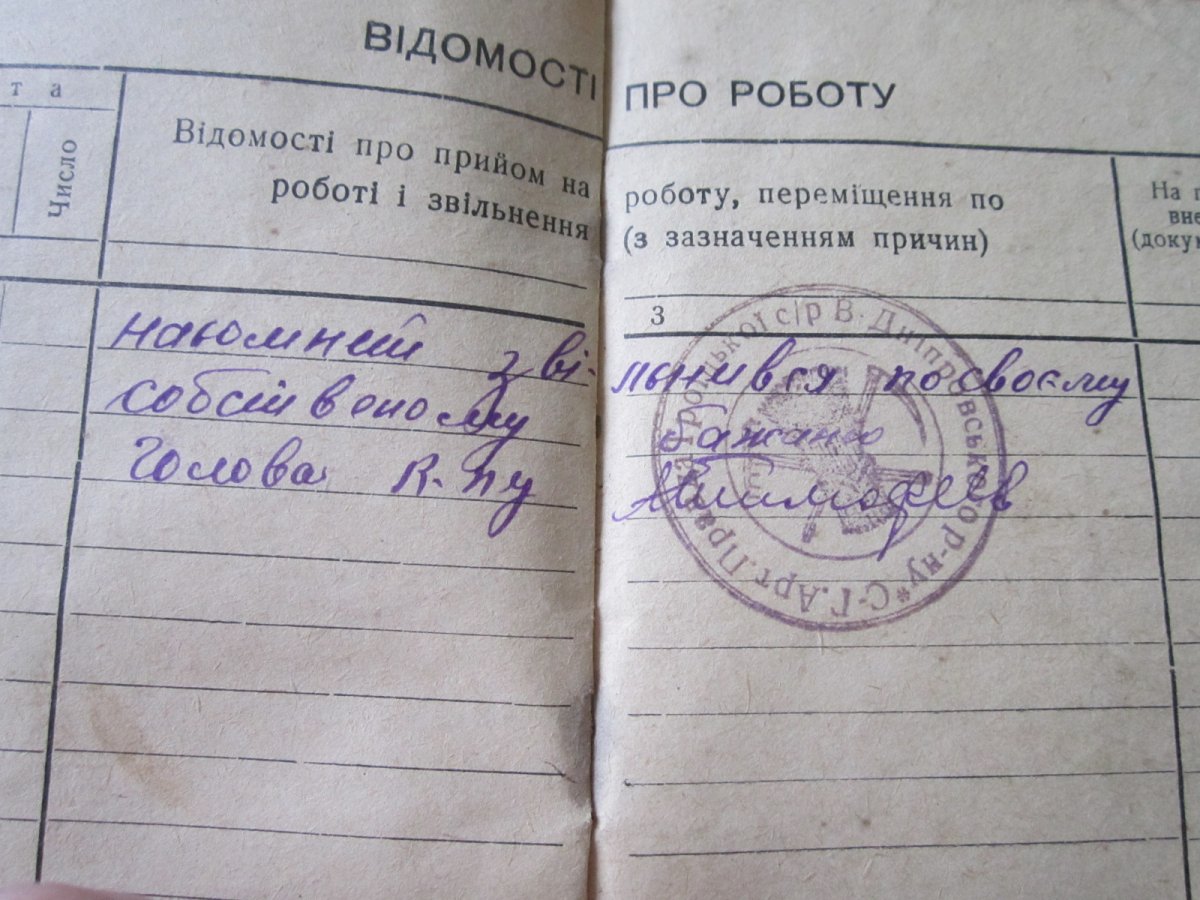 ВІДОМОСТІ ПРО РОБОТУ
та
Число
Відомості про прийом на роботу, переміщення по
роботі і звільнення (з зазначенням причин)
На
вне
(докум
3
наюмний звільнився по своєму
собствоному бажаню
Голова к-пу Тимофеев
с/р В. Дніпровського р-ну * С.-Г. Арт.